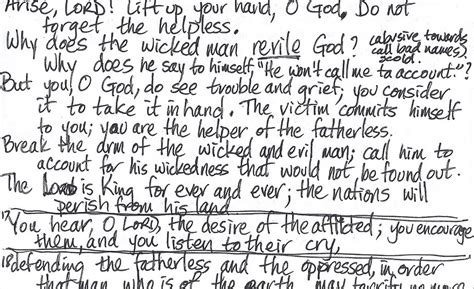 Arise, LORD! Lift up your hand, O God. Do not
forget the helpless.
Why does the wicked man revile God? (abusive towards
call bad names)
scold.
Why does he say to himself, "He won't call me to account."?
But you, O God, do see trouble and grief; you consider
it to take it in hand. The victim commits himself
to you; you are the helper of the fatherless.
Break the arm of the wicked and evil man; call him to
account for his wickedness that would not, be found out.
The Lord is King for ever and ever; the nations will
perish from his land
17 You hear, O LORD, the desire of the afflicted; you encourage
them, and you listen to their cry,
18 defending the fatherless and the oppressed, in order
that man, who is of the earth, may terrify no more